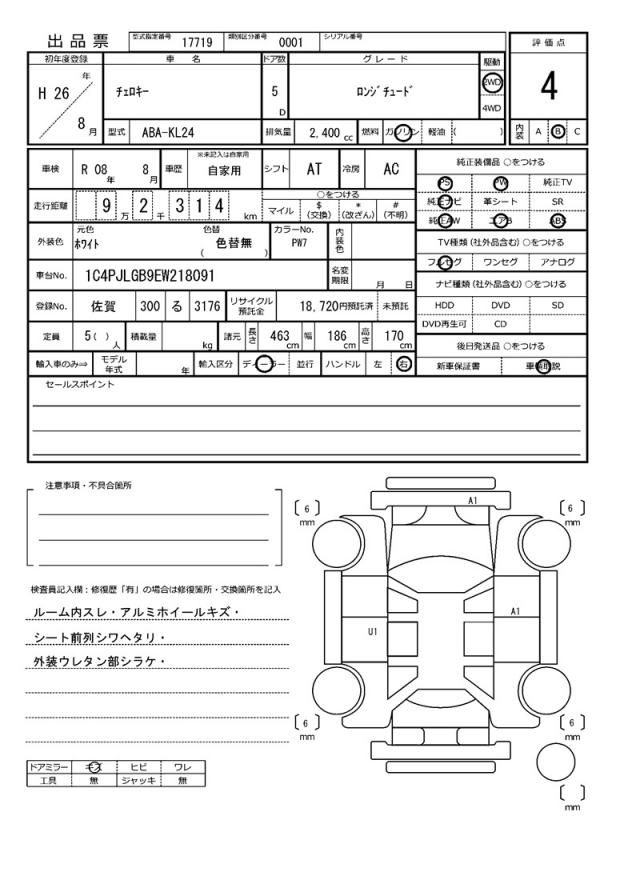 出品票 型式指定番号 17719 類別区分番号 0001 シリアル番号
評価点
4
内装 A B C
初年度登録 車名 ドア数 グレード 駆動
H 26 年 8 月 チェロキー 5 D ロンジチュード 2WD 4WD
型式 ABA-KL24 排気量 2,400 cc 燃料 ガソリン 軽油 ( )
車検 R 08 年 8 月 車歴 ※未記入は自家用 自家用 シフト AT 冷房 AC
走行距離 9 万 2 千 3 1 4 km ○をつける マイル $ (交換) * (改ざん) # (不明)
外装色 元色 ホワイト 色替 ( 色替無 ) カラーNo. PW7 内装色
車台No. 1C4PJLGB9EW218091 名変期限 月 日
登録No. 佐賀 300 る 3176 リサイクル預託金 18,720円預託済 未預託
定員 5( ) 人 積載量 kg 諸元 長さ 463 cm 幅 186 cm 高さ 170 cm
輸入車のみ⇒ モデル年式 年 輸入区分 ディーラー 並行 ハンドル 左 右
純正装備品 ○をつける
PS PW 純正TV
純正ナビ 革シート SR
純正AW エアB ABS
TV種類(社外品含む) ○をつける
フルセグ ワンセグ アナログ
ナビ種類(社外品含む) ○をつける
HDD DVD SD
DVD再生可 CD
後日発送品 ○をつける
新車保証書 車輌取説
セールスポイント
注意事項・不具合箇所
検査員記入欄：修復歴「有」の場合は修復箇所・交換箇所を記入
ルーム内スレ・アルミホイールキズ・
シート前列シワヘタリ・
外装ウレタン部シラケ・
ドアミラー キズ ヒビ ワレ
工具 無 ジャッキ 無
A1
[ 6 ] mm
[ 6 ] mm
A1
U1
[ 6 ] mm
[ 6 ] mm
[ ] mm